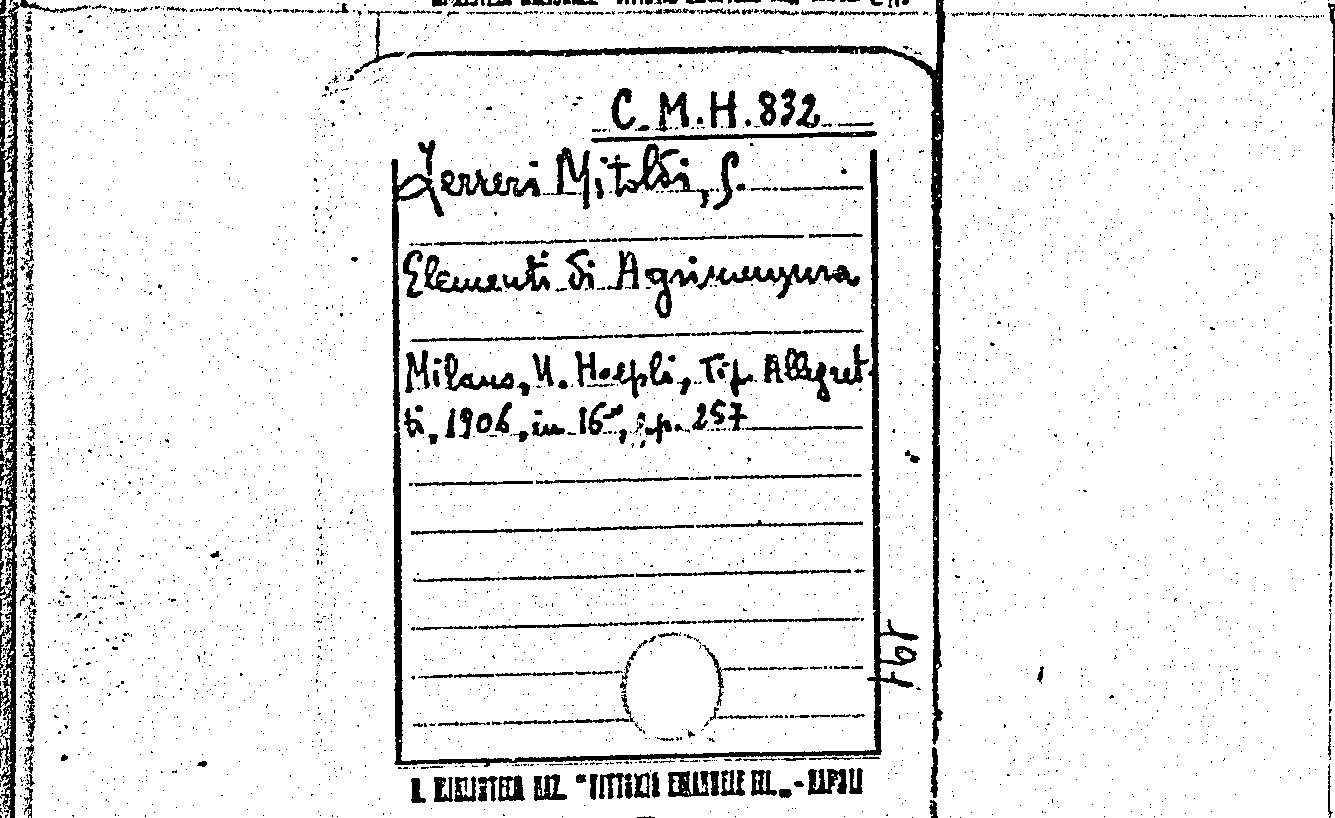 C. M. H. 832
Ferreri Mitoldi, S.
Elementi di Agrimensura
Milano, U. Hoepli, Tip. Allegret-
ti, 1906, in 16°, pp. 257
R. BIBLIOTECA NAZ. "VITTORIO EMANUELE III„ - NAPOLI